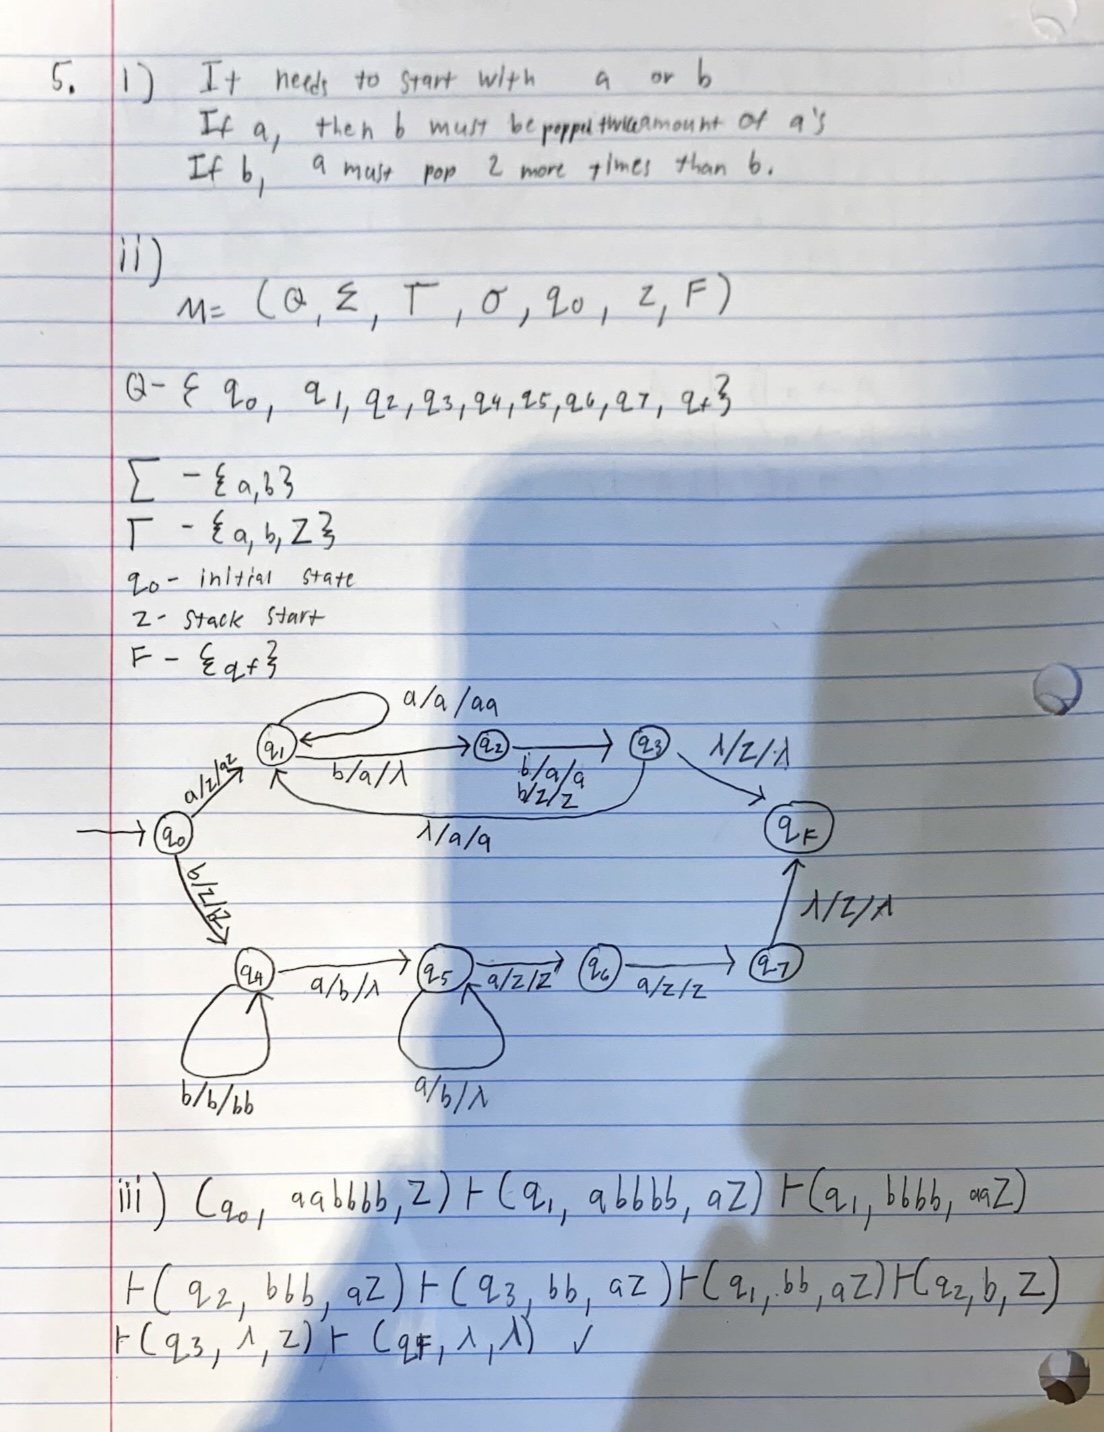 5. 1) It needs to start with a or b
If a, then b must be popped twice amount of a's
If b, a must pop 2 more times than b.
ii)
M= (Q, Σ, Γ, σ, q0, z, F)
Q- { q0, q1, q2, q3, q4, q5, q6, q7, qf}
Σ - {a,b}
Γ - {a, b, Z}
q0 - initial state
z - stack start
F - {qf}
a/a/aa
q1
q2
q3
b/a/λ
b/a/a
b/z/z
λ/z/λ
a/z/az
λ/a/a
q0
qF
b/z/bz
λ/z/λ
q4
q5
q6
q7
a/b/λ
a/z/z
a/z/z
b/b/bb
a/b/λ
iii) (q0, aabbbb, Z) ⊢ (q1, abbbb, aZ) ⊢ (q1, bbbb, aaZ)
⊢ (q2, bbb, aZ) ⊢ (q3, bb, aZ) ⊢ (q1, bb, aZ) ⊢ (q2, b, Z)
⊢ (q3, λ, z) ⊢ (qF, λ, λ) ✓